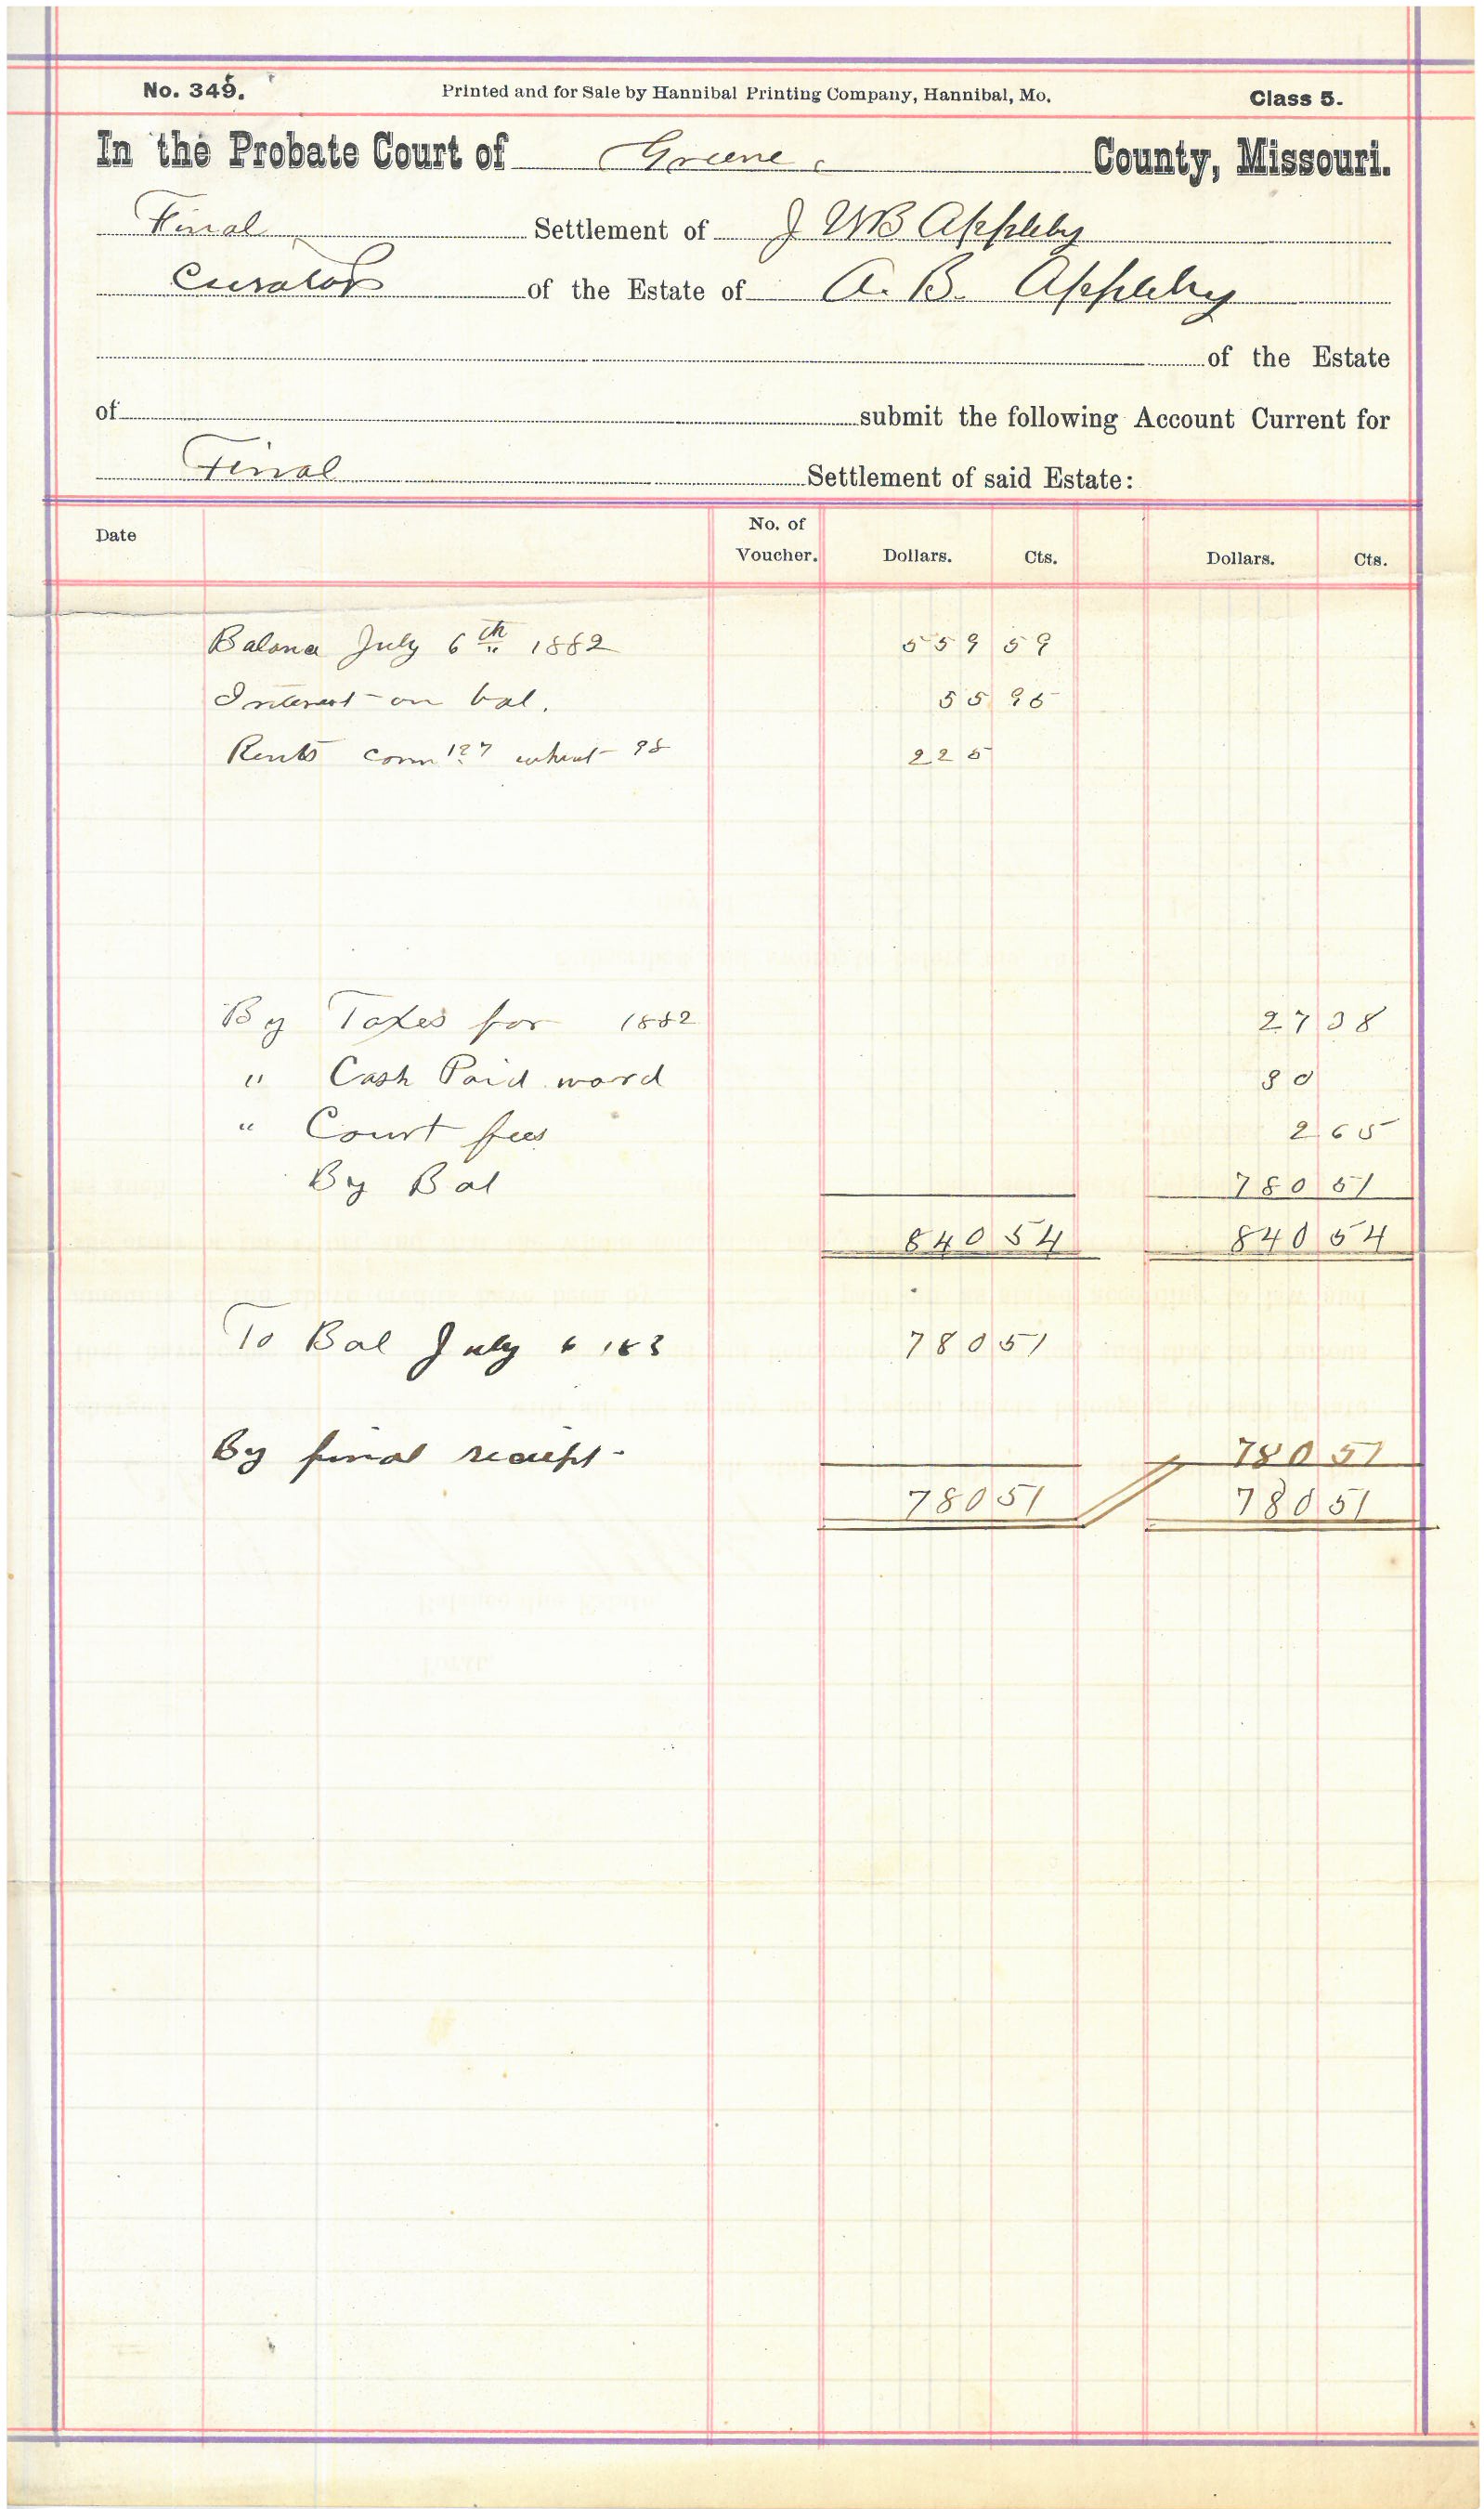 No. 345. Printed and for Sale by Hannibal Printing Company, Hannibal, Mo. Class 5.
In the Probate Court of Greene County, Missouri.
Final Settlement of J WB Appleby
Curator of the Estate of A. B. Appleby
of the Estate
of submit the following Account Current for
Final Settlement of said Estate:
Date No. of Voucher. Dollars. Cts. Dollars. Cts.
Balance July 6th 1882 559 59
Interest on bal. 55 95
Rents corn 127 wheat 98 225
By Taxes for 1882 27 38
" Cash Paid ward 30
" Court fees 2 65
By Bal 780 51
840 54 840 54
To Bal July 6 188 780 51
By final receipt 780 51
780 51 780 51